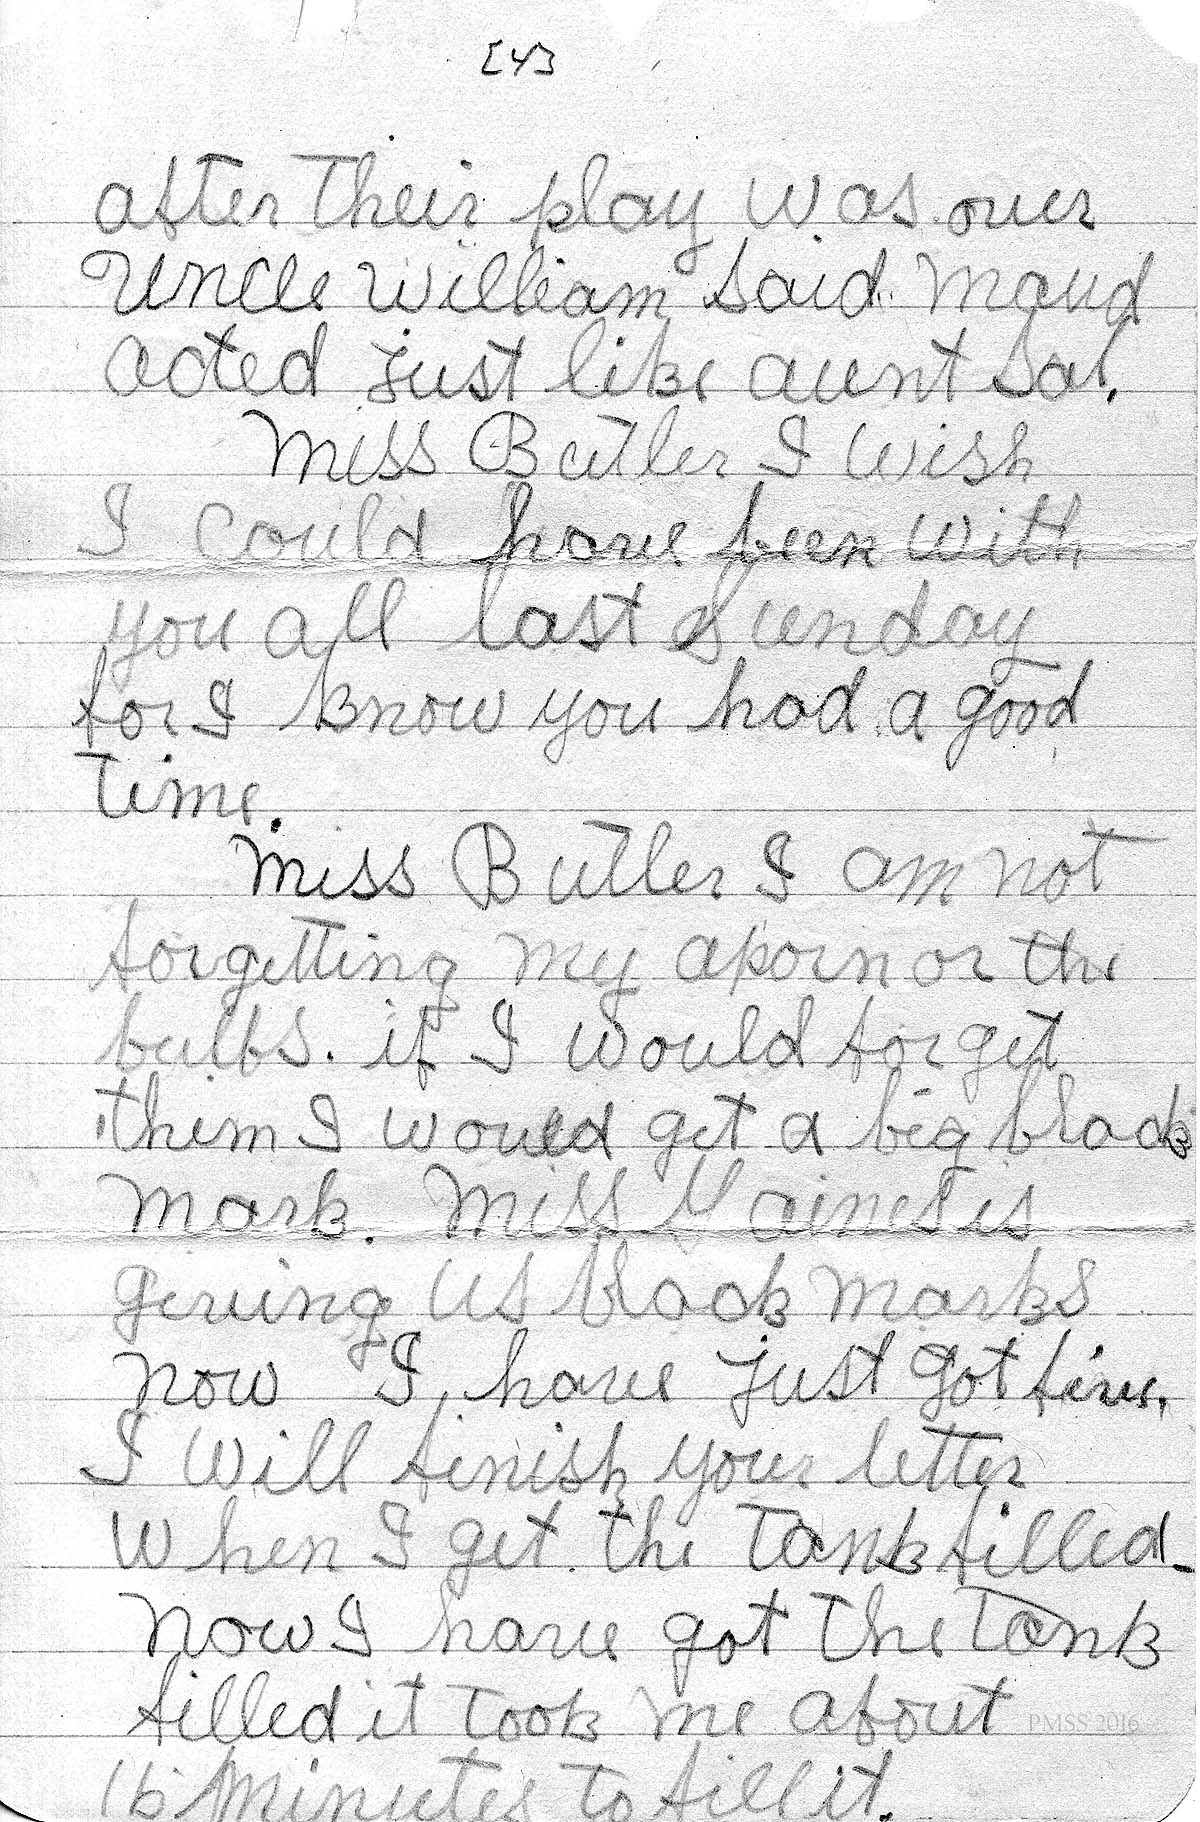 [4]
after their play was over
Uncle William said Maud
acted just like aunt Sal.
Miss Butler I wish
I could have been with
you all last Sunday
for I know you had a good
time.
Miss Butler I am not
forgetting my aporn or the
bulbs. if I would forget
them I would get a big black
mark. Miss Gaines is
geving us black marks
now I have just got five.
I will finish your letter
when I get the tank filled.
Now I have got the tank
filled it took me about
PMSS 2016
16 minutes to fill it.